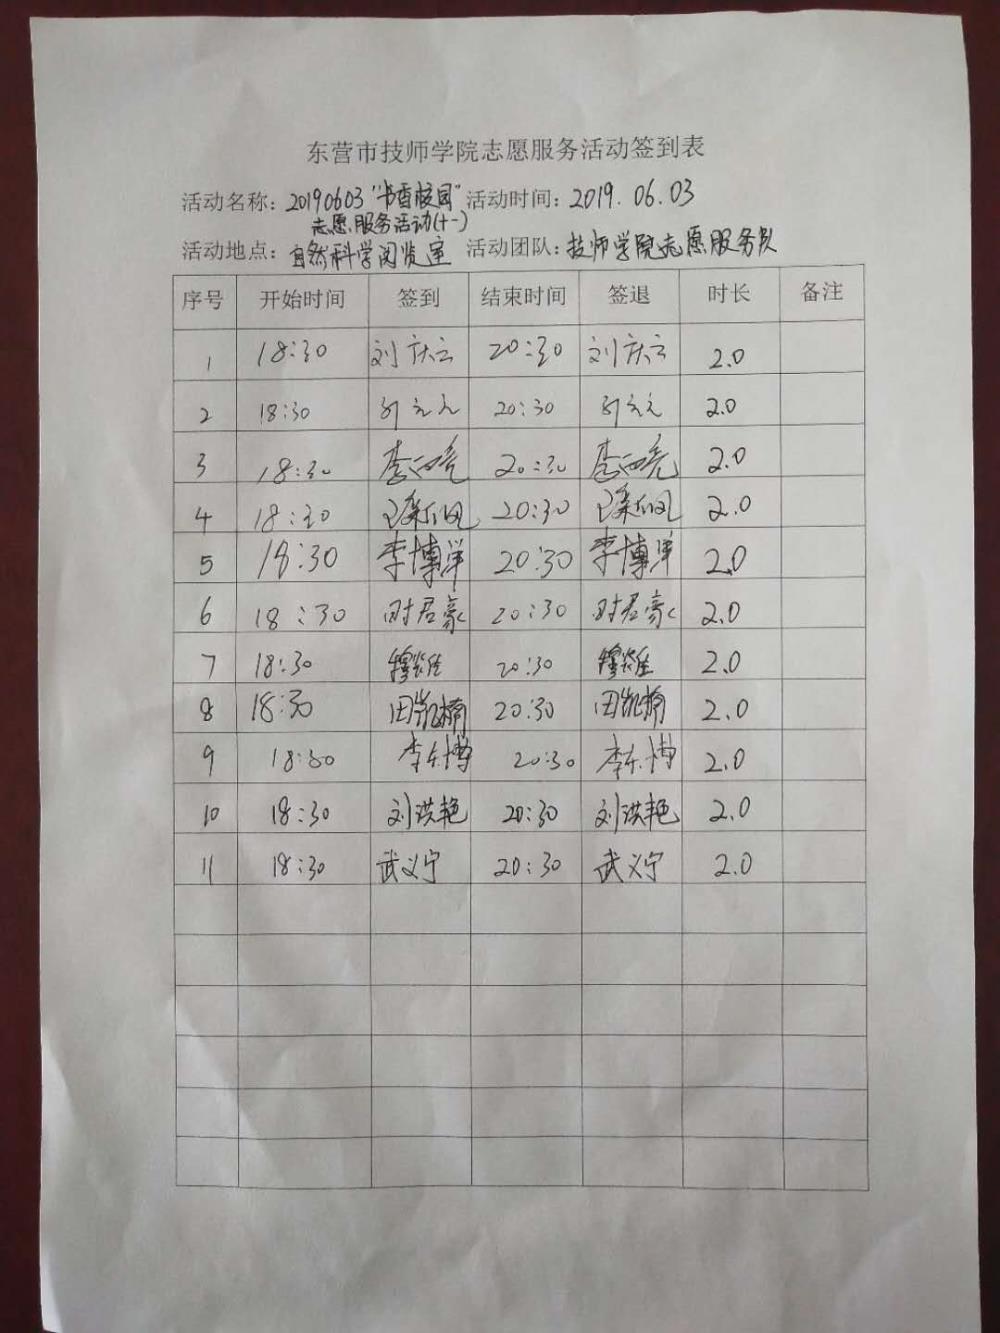 东营市技师学院志愿服务活动签到表
活动名称：20190603“书香校园” 活动时间：2019.06.03
志愿服务活动(十一)
活动地点：自然科学阅览室 活动团队：技师学院志愿服务队
序号 开始时间 签到 结束时间 签退 时长 备注
1 18:30 刘庆云 20:30 刘庆云 2.0
2 18:30 20:30 2.0
3 18:30 李 亮 20:30 李 亮 2.0
4 18:30 20:30 2.0
5 18:30 李博洋 20:30 李博洋 2.0
6 18:30 时君豪 20:30 时君豪 2.0
7 18:30 穆 20:30 穆 2.0
8 18:30 田凯楠 20:30 田凯楠 2.0
9 18:30 李东博 20:30 李东博 2.0
10 18:30 刘洪艳 20:30 刘洪艳 2.0
11 18:30 武义宁 20:30 武义宁 2.0